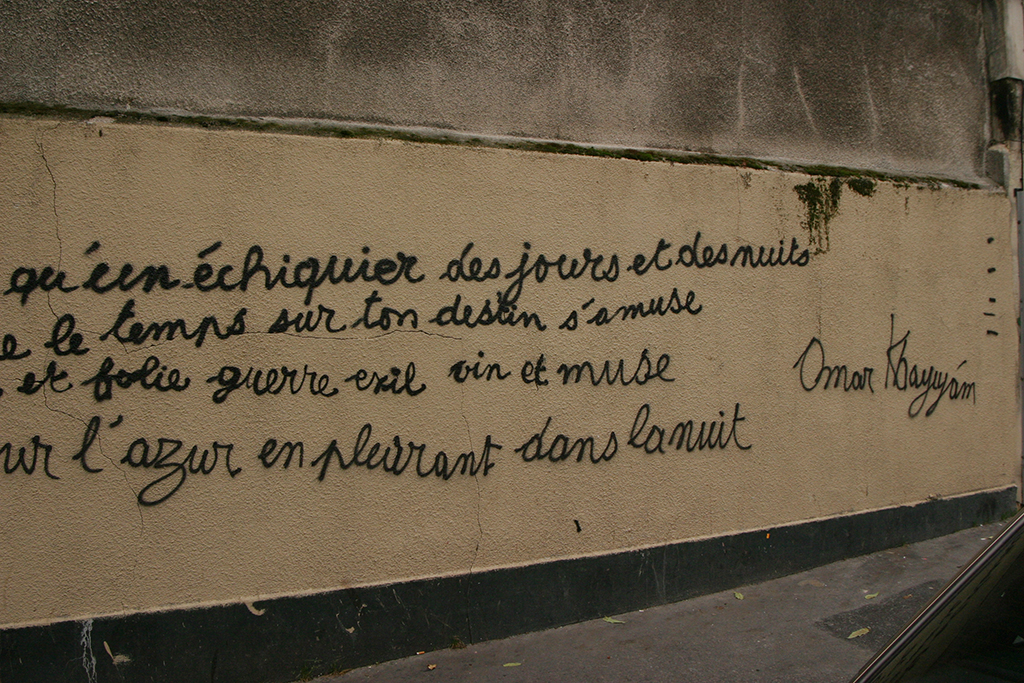 qu'un échiquier des jours et des nuits
e le temps sur ton destin s'amuse
et folie guerre exil vin et muse
ur l'azur en pleurant dans la nuit
Omar Khayyám